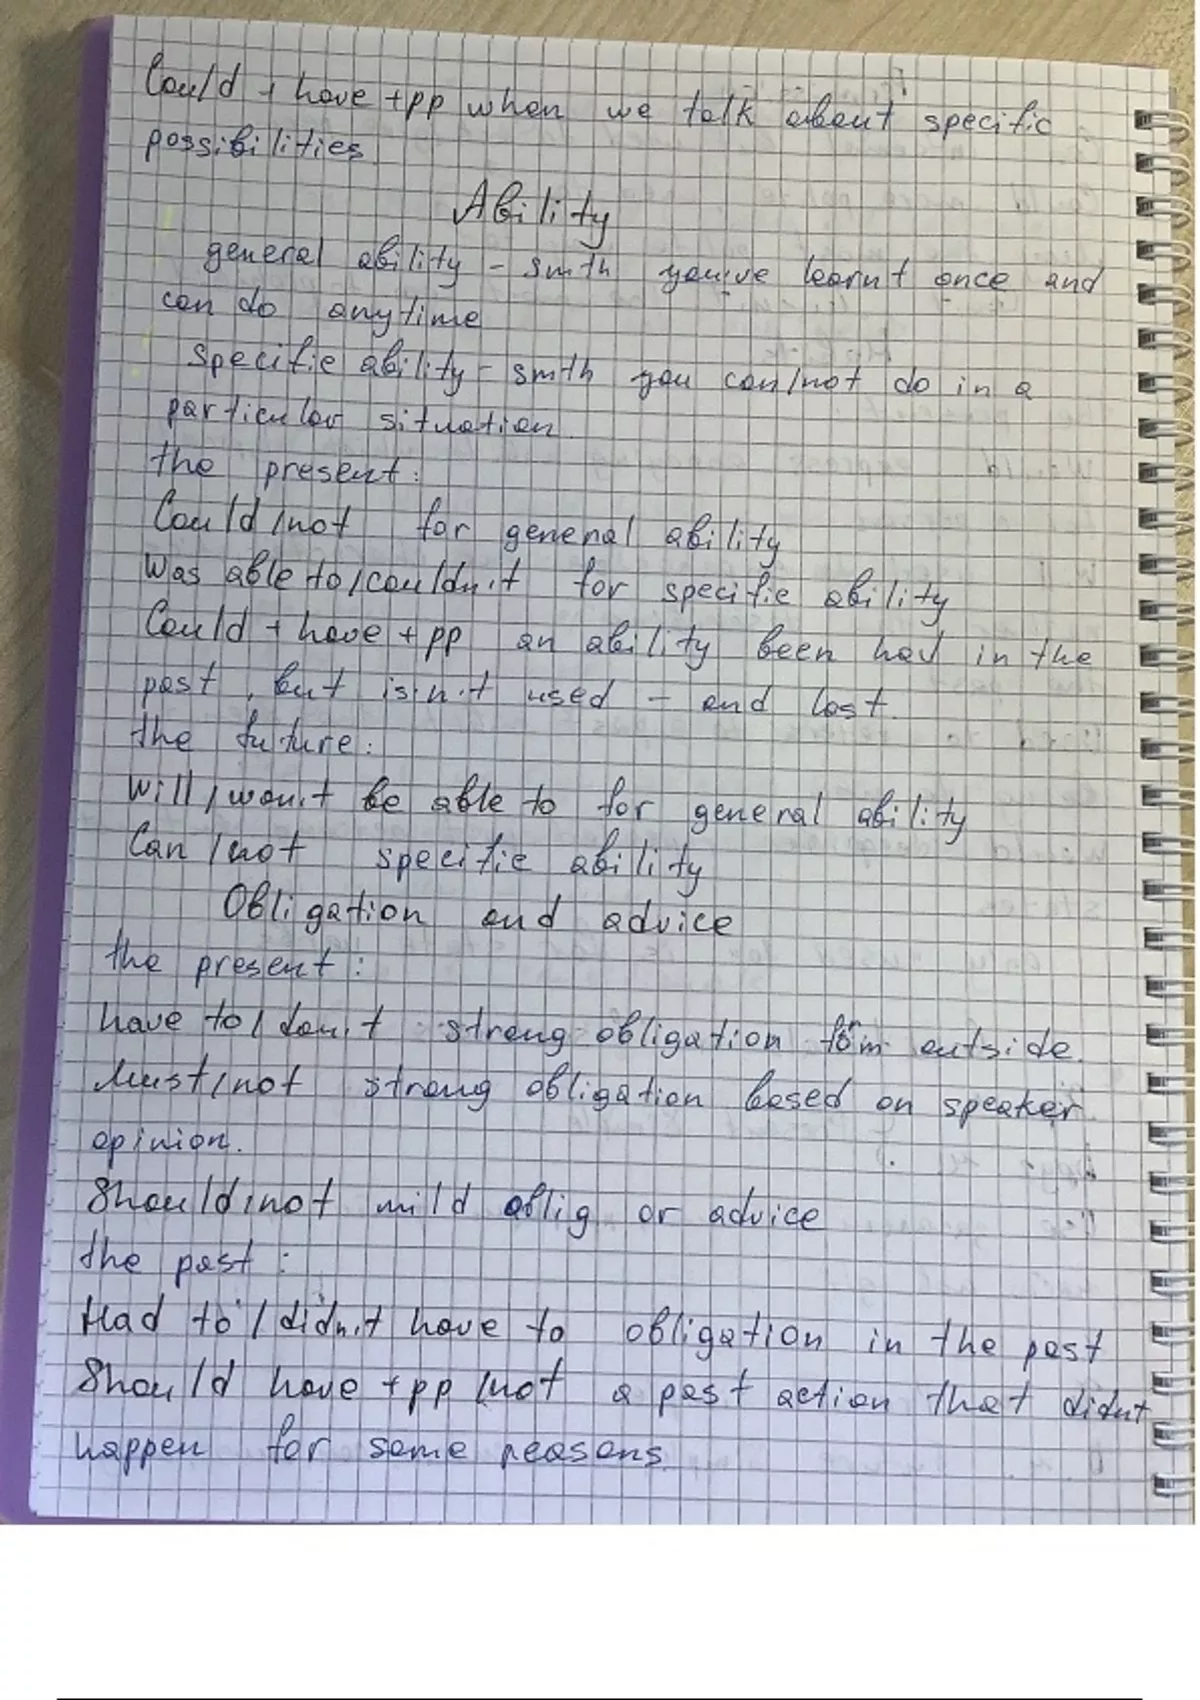 Could + have + pp when we talk about specific
possibilities
Ability
general ability - smth you've learnt once and
can do anytime
specific ability - smth you can/not do in a
particular situation.
the present:
Could/not for general ability
Was able to/couldn't for specific ability
Could + have + pp an ability been had in the
past, but isn't used - and lost.
the future:
Will/won't be able to for general ability
Can/not specific ability
Obligation and advice
the present:
have to/don't strong obligation form outside.
Must/not strong obligation based on speaker
opinion.
Should/not mild oblig or advice
the past:
Had to/didn't have to obligation in the past
Should have + pp/not a past action that didnt
happen for some reasons.